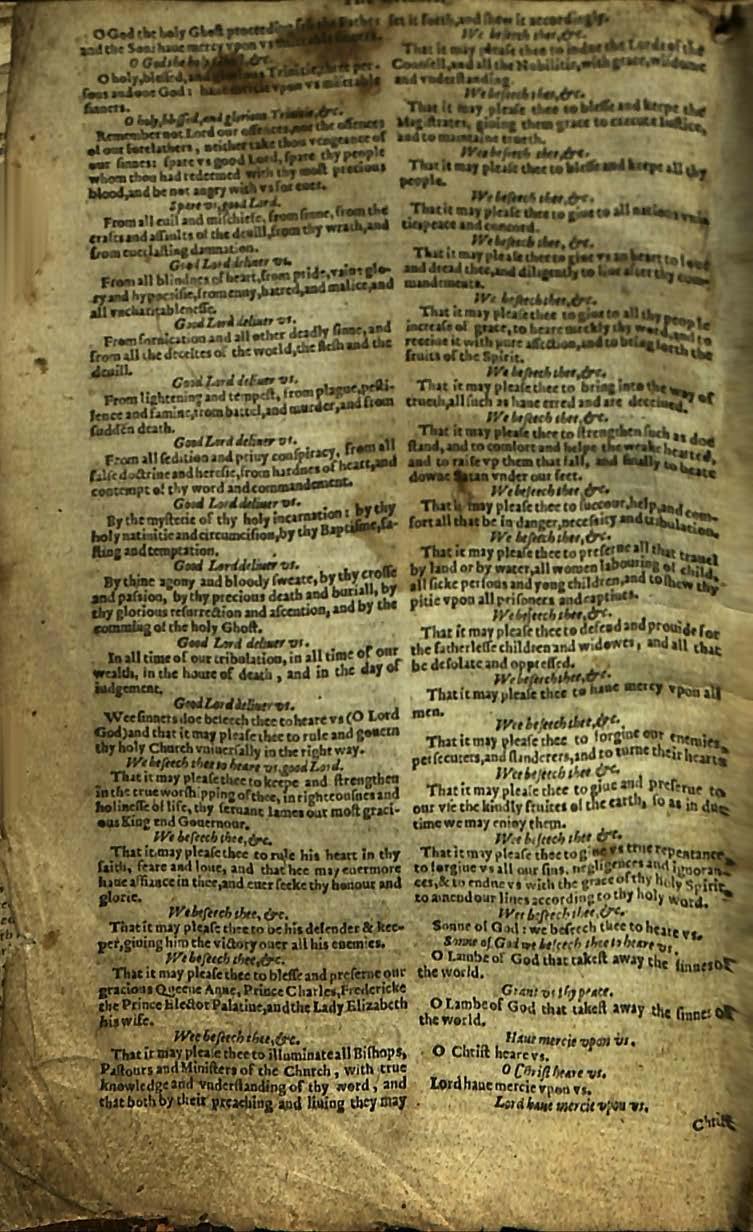 O God the holy Ghost proceeding from the Father
and the Son: haue mercy vpon vs
O God the holy &c.
O holy, blessed, and glorious Trinitie, three per-
sons and one God: haue mercie vpon vs miserable
sinners.
O holy, blessed, and glorious Trinitie, &c.
Remember not Lord our offences, nor the offences
of our forefathers, neither take thou vengeance of
our sinnes: spare vs good Lord, spare thy people
whom thou had redeemed with thy most precious
blood, and be not angry with vs for euer.
Spare vs, good Lord.
From all euill and mischiefe, from sinne, from the
crafts and assaults of the deuill, from thy wrath, and
from euerlasting damnation.
Good Lord deliuer vs.
From all blindnes of heart, from pride, vaine glo-
ry and hypocrisie, from enuy, hatred, and malice, and
all vncharitablenesse.
Good Lord deliuer vs.
From fornication and all other deadly sinne, and
from all the deceites of the world, the flesh and the
deuill.
Good Lord deliuer vs.
From lightening and tempest, from plague, pesti-
lence and famine, from battel, and murder, and from
sudden death.
Good Lord deliuer vs.
From all sedition and priuy conspiracy, from all
false doctrine and heresie, from hardnes of heart, and
contempt of thy word and commandement.
Good Lord deliuer vs.
By the mysterie of thy holy incarnation: by thy
holy natiuitie and circumcision, by thy Baptisme, fa-
sting and temptation.
Good Lord deliuer vs.
By thine agony and bloody sweate, by thy crosse
and passion, by thy precious death and buriall, by
thy glorious resurrection and ascention, and by the
comming of the holy Ghost.
Good Lord deliuer vs.
In all time of our tribulation, in all time of our
wealth, in the houre of death, and in the day of
iudgement.
Good Lord deliuer vs.
Wee sinners doe beseech thee to heare vs (O Lord
God) and that it may please thee to rule and gouern
thy holy Church vniuersally in the right way.
We beseech thee to heare vs, good Lord.
That it may please thee to keepe and strengthen
in the true worshipping of thee, in righteousnes and
holinesse of life, thy seruant Iames our most graci-
ous King end Gouernour.
We beseech thee, &c.
That it may please thee to rule his heart in thy
faith, feare and loue, and that hee may euermore
haue affiance in thee, and euer seeke thy honour and
glorie.
We beseech thee, &c.
That it may please thee to be his defender & kee-
per, giuing him the victory ouer all his enemies.
We beseech thee, &c.
That it may please thee to blesse and preserue our
gracious Queene Anne, Prince Charles, Fredericke
the Prince Elector Palatine, and the Lady Elizabeth
his wife.
Wee beseech thee, &c.
That it may please thee to illuminate all Bishops,
Pastours and Ministers of the Church, with true
knowledge and vnderstanding of thy word, and
that both by their preaching and liuing they may
set it forth, and shew it accordingly.
We beseech thee, &c.
That it may please thee to indue the Lords of the
Counsell, and all the Nobilitie, with grace, wisdome
and vnderstanding.
We beseech thee, &c.
That it may please thee to blesse and keepe the
Magistrates, giuing them grace to execute Iustice,
and to maintaine trueth.
Wee beseech thee, &c.
That it may please thee to blesse and keepe all thy
people.
We beseech thee, &c.
That it may please thee to giue to all nations vnin
tie, peace and concord.
We beseech thee, &c.
That it may please thee to giue vs an heart to loue
and dread thee, and diligently to liue after thy com-
mandements.
We beseech thee, &c.
That it may please thee to giue to all thy people
increase of grace, to heare meekly thy word, and to
receiue it with pure affection, and to bring forth the
fruits of the Spirit.
We beseech thee, &c.
That it may please thee to bring into the way of
trueth, all such as haue erred and are deceiued.
We beseech thee, &c.
That it may please thee to strengthen such as doe
stand, and to comfort and helpe the weake hearted,
and to raise vp them that fall, and finally to beate
downe Satan vnder our feet.
We beseech thee, &c.
That it may please thee to succour, help, and com-
fort all that be in danger, necessity and tribulation.
We beseech thee, &c.
That it may please thee to preserue all that trauel
by land or by water, all women labouring of child,
all sicke persons and yong children, and to shew thy
pitie vpon all prisoners and captiues.
We beseech thee, &c.
That it may please thee to defend and prouide for
the fatherlesse children and widowes, and all that
be desolate and oppressed.
We beseech thee, &c.
That it may please thee to haue mercy vpon all
men.
Wee beseech thee, &c.
That it may please thee to forgiue our enemies,
persecuters, and slanderers, and to turne their hearts
Wee beseech thee, &c.
That it may please thee to giue and preserue to
our vse the kindly fruites of the earth, so as in due
time we may enioy them.
Wee beseech thee &c.
That it may please thee to giue vs true repentance,
to forgiue vs all our sins, negligences and ignoran-
ces, & to endue vs with the grace of thy holy Spirit,
to amend our liues according to thy holy word.
Wee beseech thee, &c.
Sonne of God: we beseech thee to heare vs.
Sonne of God we beseech thee to heare vs.
O Lambe of God that takest away the sinnes of
the world.
Grant vs thy peace.
O Lambe of God that takest away the sinnes of
the world.
Haue mercie vpon vs.
O Christ heare vs.
O Christ heare vs.
Lord haue mercie vpon vs.
Lord haue mercie vpon vs.
Christ